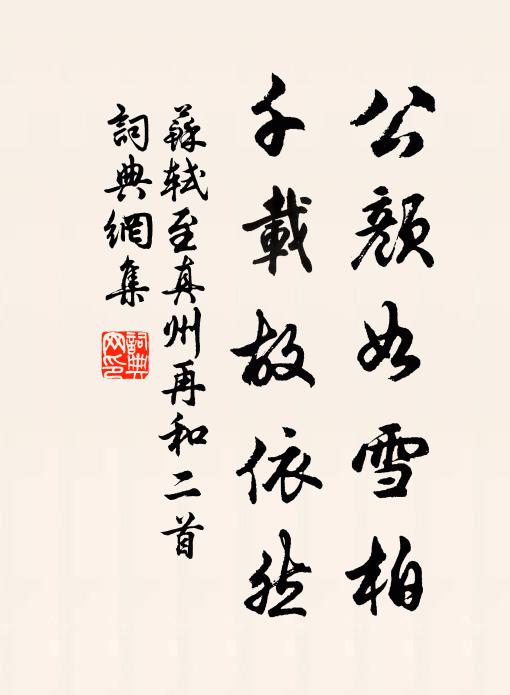 公顏如雪柏
千載故依然
蘇軾至真州再和二首
詞典網集
詞典網印